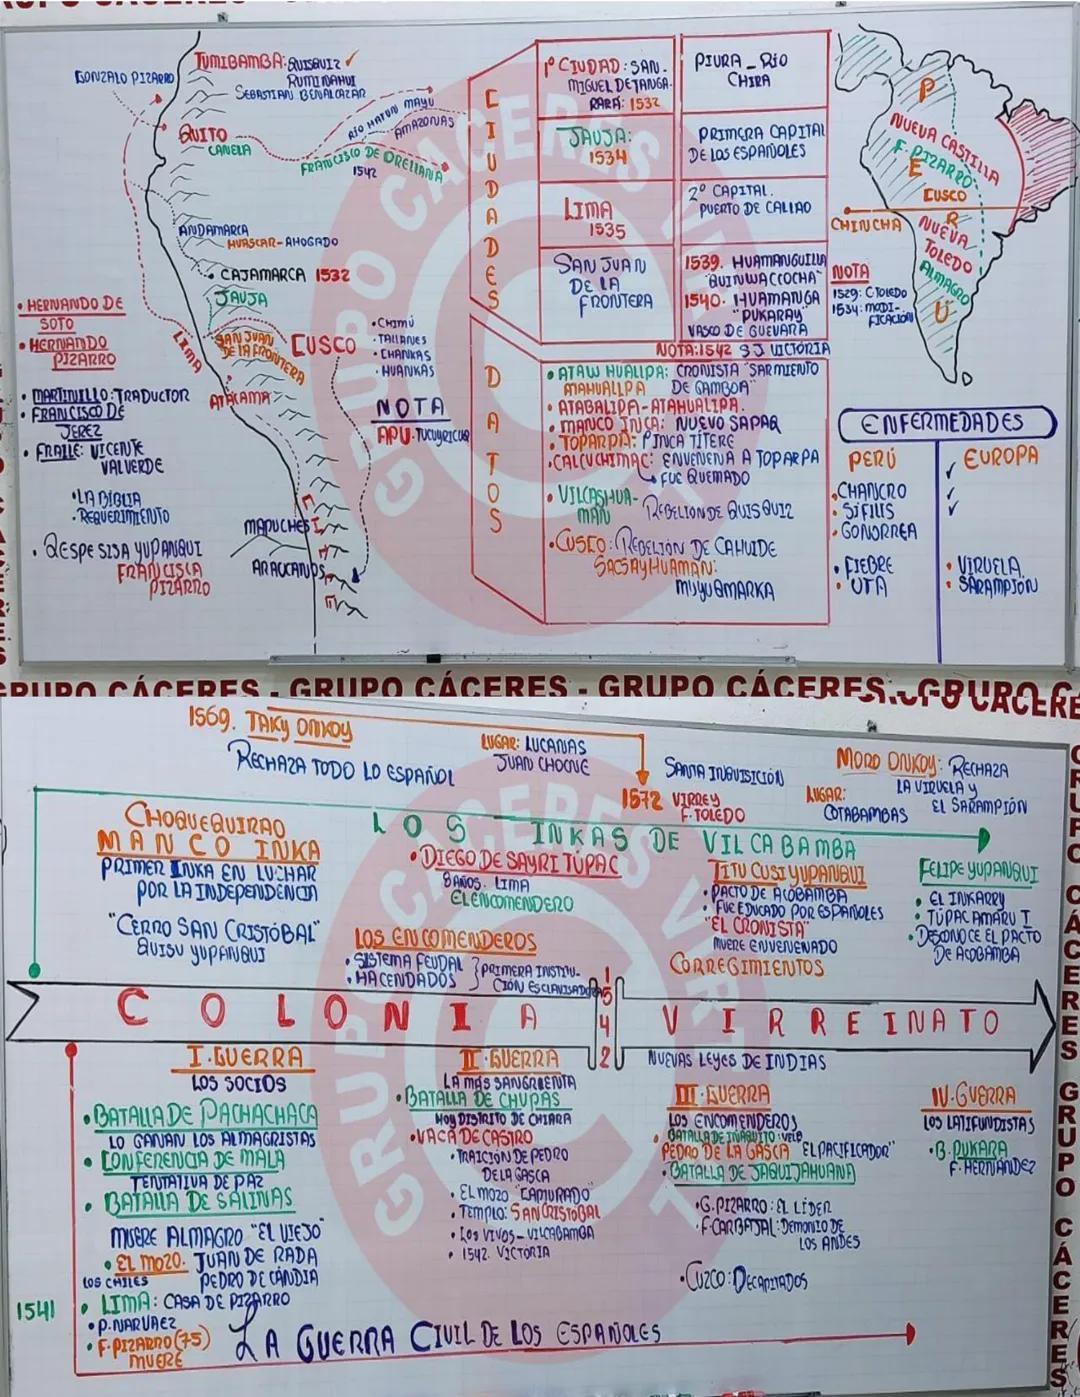 GONZALO PIZARRO
TUMIBAMBA: QUISQUIZ
RUMIÑAHUI
SEBASTIAN BENALCAZAR
QUITO
CANELA
RÍO HATUN MAYU
AMAZONAS
FRANCISCO DE ORELLANA
1542
ANDAMARCA
HUASCAR-AHOGADO
CAJAMARCA 1532
JAUJA
SAN JUAN
DE LA FRONTERA
CUSCO
LIMA
ATACAMA
• CHIMÚ
• TALLANES
• CHANKAS
• HUANKAS
NOTA
APU-TUCUYRICUQ
MAPUCHES
ARAUCANOS
• HERNANDO DE
SOTO
• HERNANDO
PIZARRO
• MARTINILLO: TRADUCTOR
• FRANCISCO DE
JEREZ
• FRAILE: VICENTE
VALVERDE
• LA BIBLIA
• REQUERIMIENTO
• QESPE SISA YUPANQUI
FRANCISCA
PIZARRO
CIUDADES
1º CIUDAD: SAN-
MIGUEL DE TANGA-
RARÁ: 1532
PIURA - RÍO
CHIRA
JAUJA:
1534
PRIMERA CAPITAL
DE LOS ESPAÑOLES
LIMA
1535
2º CAPITAL.
PUERTO DE CALLAO
SAN JUAN
DE LA
FRONTERA
1539. HUAMANGUILLA
"QUINWACCOCHA"
1540. HUAMANGA
"PUKARAY"
VASCO DE GUEVARA
NOTA: 1542 SJ VICTORIA
DATOS
• ATAW HUALLPA: CRONISTA "SARMIENTO
MAHUALLPA DE GAMBOA"
• ATABALIPA-ATAHUALIPA.
• MANCO INCA: NUEVO SAPAQ
• TOPARPA: INCA TÍTERE
• CALCUCHIMAC: ENVENENA A TOPARPA
FUE QUEMADO
• VILCASHUA-
MÁN
REBELION DE QUISQUIZ
• CUSCO: REBELIÓN DE CAHUIDE
SACSAYHUAMÁN:
MUYUQMARKA
P
NUEVA CASTILLA
F. PIZARRO
E
CUSCO
CHINCHA
R
NUEVA
TOLEDO
ALMAGRO
Ú
NOTA
1529: C. TOLEDO
1534: MODI-
FICACIÓN
ENFERMEDADES
PERÚ
EUROPA
• CHANCRO
• SÍFILIS
• GONORREA
• FIEBRE
• UTA
• VIRUELA
• SARAMPIÓN
GRUPO CÁCERES VIRTUAL
GRUPO CÁCERES - GRUPO CÁCERES - GRUPO CÁCERES - GRUPO CÁCERES
1569. TAKY ONKOY
RECHAZA TODO LO ESPAÑOL
LUGAR: LUCANAS
JUAN CHOCNE
1572 VIRREY
F. TOLEDO
SANTA INQUISICIÓN
MORO ONKOY: RECHAZA
LA VIRUELA Y
EL SARAMPIÓN
LUGAR:
COTABAMBAS
LOS INKAS DE VILCABAMBA
CHOQUEQUIRAO
MANCO INKA
PRIMER INKA EN LUCHAR
POR LA INDEPENDENCIA
"CERRO SAN CRISTÓBAL"
QUISU YUPANQUI
• DIEGO DE SAYRI TÚPAC
8 AÑOS. LIMA
EL ENCOMENDERO
LOS ENCOMENDEROS
• SISTEMA FEUDAL
• HACENDADOS
PRIMERA INSTITU-
CIÓN ESCLAVISADORA
TITU CUSI YUPANQUI
• PACTO DE ACOBAMBA
• FUE EDUCADO POR ESPAÑOLES
"EL CRONISTA"
MUERE ENVENENADO
CORREGIMIENTOS
FELIPE YUPANQUI
• EL INKARRY
• TÚPAC AMARU I
• DESCONOCE EL PACTO
DE ACOBAMBA
COLONIA
1542
VIRREINATO
NUEVAS LEYES DE INDIAS
I. GUERRA
LOS SOCIOS
• BATALLA DE PACHACHACA
LO GANAN LOS ALMAGRISTAS
• CONFERENCIA DE MALA
TENTATIVA DE PAZ
• BATALLA DE SALINAS
MUERE ALMAGRO "EL VIEJO"
• EL MOZO. JUAN DE RADA
LOS CHILES PEDRO DE CANDIA
1541
• LIMA: CASA DE PIZARRO
• P. NARVAEZ
• F. PIZARRO (75)
MUERE
II. GUERRA
LA MÁS SANGRIENTA
• BATALLA DE CHUPAS
HOY DISTRITO DE CHIARA
• VACA DE CASTRO
• TRAICIÓN DE PEDRO
DE LA GASCA
• EL MOZO "CAPTURADO"
• TEMPLO: SAN CRISTÓBAL
• LOS VIVOS-VILCABAMBA
• 1542. VICTORIA
III. GUERRA
LOS ENCOMENDEROS
• BATALLA DE IÑAQUITO: VELA
PEDRO DE LA GASCA "EL PACIFICADOR"
• BATALLA DE JAQUIJAHUANA
• G. PIZARRO: EL LÍDER
• F. CARBAJAL: DEMONIO DE
LOS ANDES
• CUZCO: DECAPITADOS
IV. GUERRA
LOS LATIFUNDISTAS
• B. PUKARA
F. HERNANDEZ
LA GUERRA CIVIL DE LOS ESPAÑOLES
GRUPO CÁCERES VIRTUAL
GRUPO CÁCERES GRUPO CÁCERES